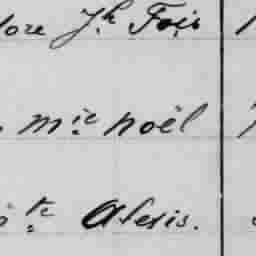 Jh Fois
Mie noël
te Alexis.